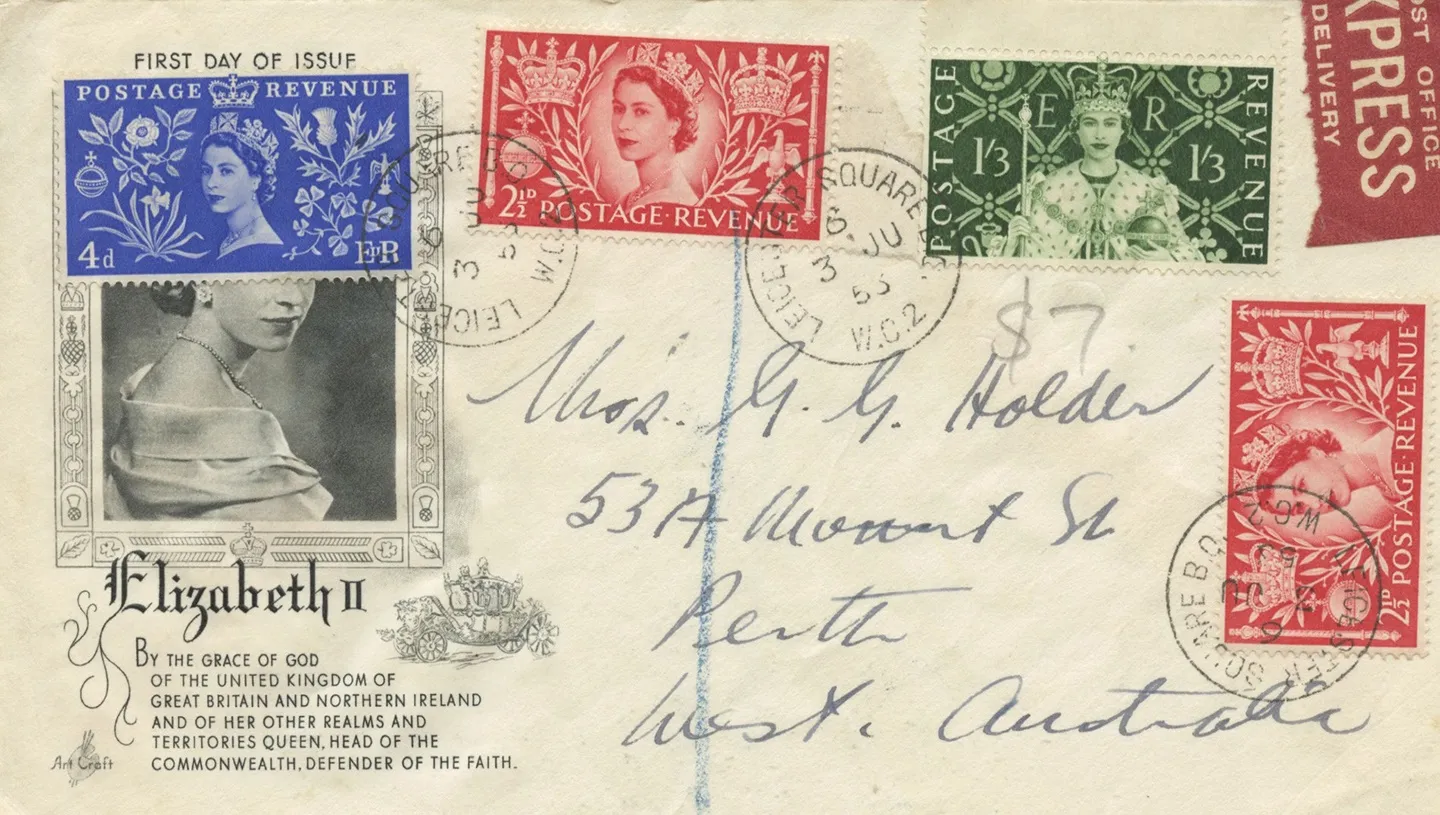 FIRST DAY OF ISSUE
POSTAGE REVENUE
4d
EIIR
2½D POSTAGE·REVENUE
POSTAGE
E R
1/3 1/3
REVENUE
POST OFFICE
EXPRESS
DELIVERY
LEICESTER SQUARE B.O.
6
3 JU
53
W.C.2
LEICESTER SQUARE B.O.
6
3 JU
53
W.C.2
$7
G. G. Holder
53A Mount St
Perth
West. Australia
2½D POSTAGE·REVENUE
LEICESTER SQUARE B.O.
6
3 JU
53
W.C.2
Elizabeth II
BY THE GRACE OF GOD
OF THE UNITED KINGDOM OF
GREAT BRITAIN AND NORTHERN IRELAND
AND OF HER OTHER REALMS AND
TERRITORIES QUEEN, HEAD OF THE
COMMONWEALTH, DEFENDER OF THE FAITH.
Art Craft